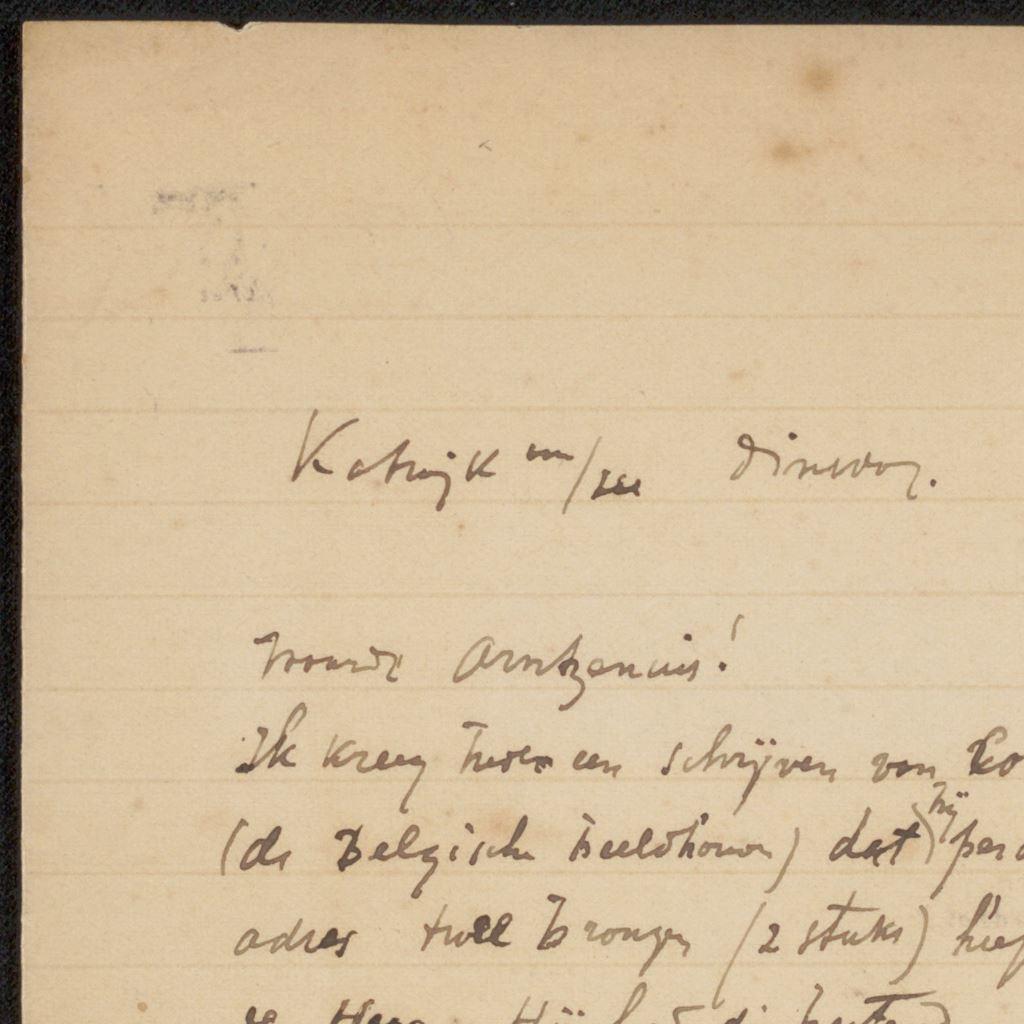 Katwijk an/zee dinsdag.
Waarde Arntzenius!
Ik kreeg heden een schrijven van
hij
(de Belgische beeldhouwer) dat
adres twee bronzen (2 stuks)